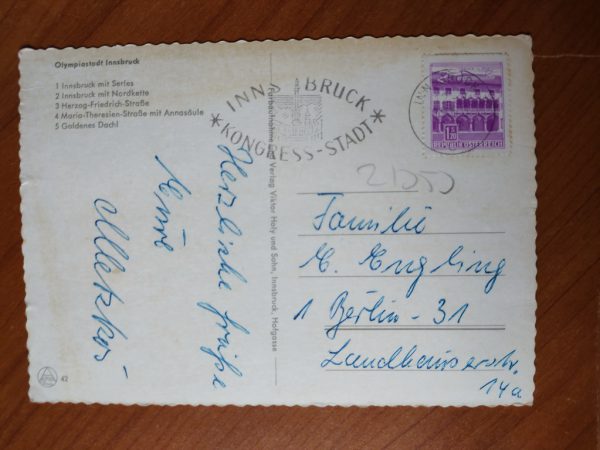 Olympiastadt Innsbruck
1 Innsbruck mit Serles
2 Innsbruck mit Nordkette
3 Herzog-Friedrich-Straße
4 Maria-Theresien-Straße mit Annasäule
5 Goldenes Dachl
INNSBRUCK
*KONGRESS-STADT*
INN
1.20
REPUBLIK ÖSTERREICH
Herzliche Grüße
Eure
Verlag Viktor Hofy und Sohn, Innsbruck, Hofgasse
Familie
E. Engling
1 Berlin-31
Landhausstr.
14a
42